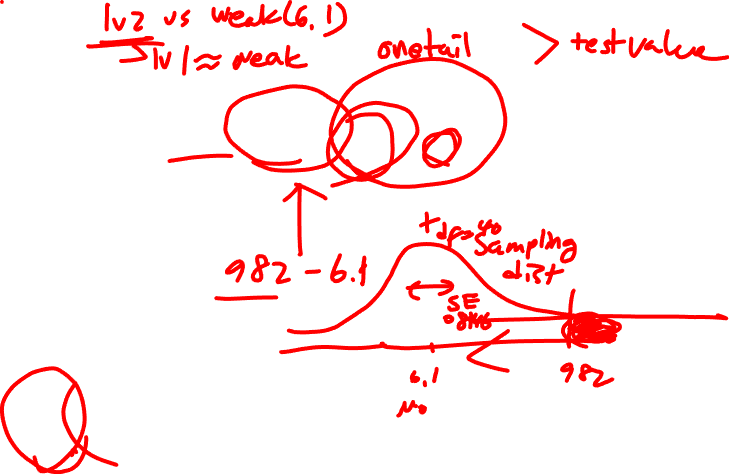 lv2 vs weak(6.1)
lv1 ≈ weak
onetail
> test value
982 - 6.1
t df=40
Sampling
dist
SE
6.1
μ0
982